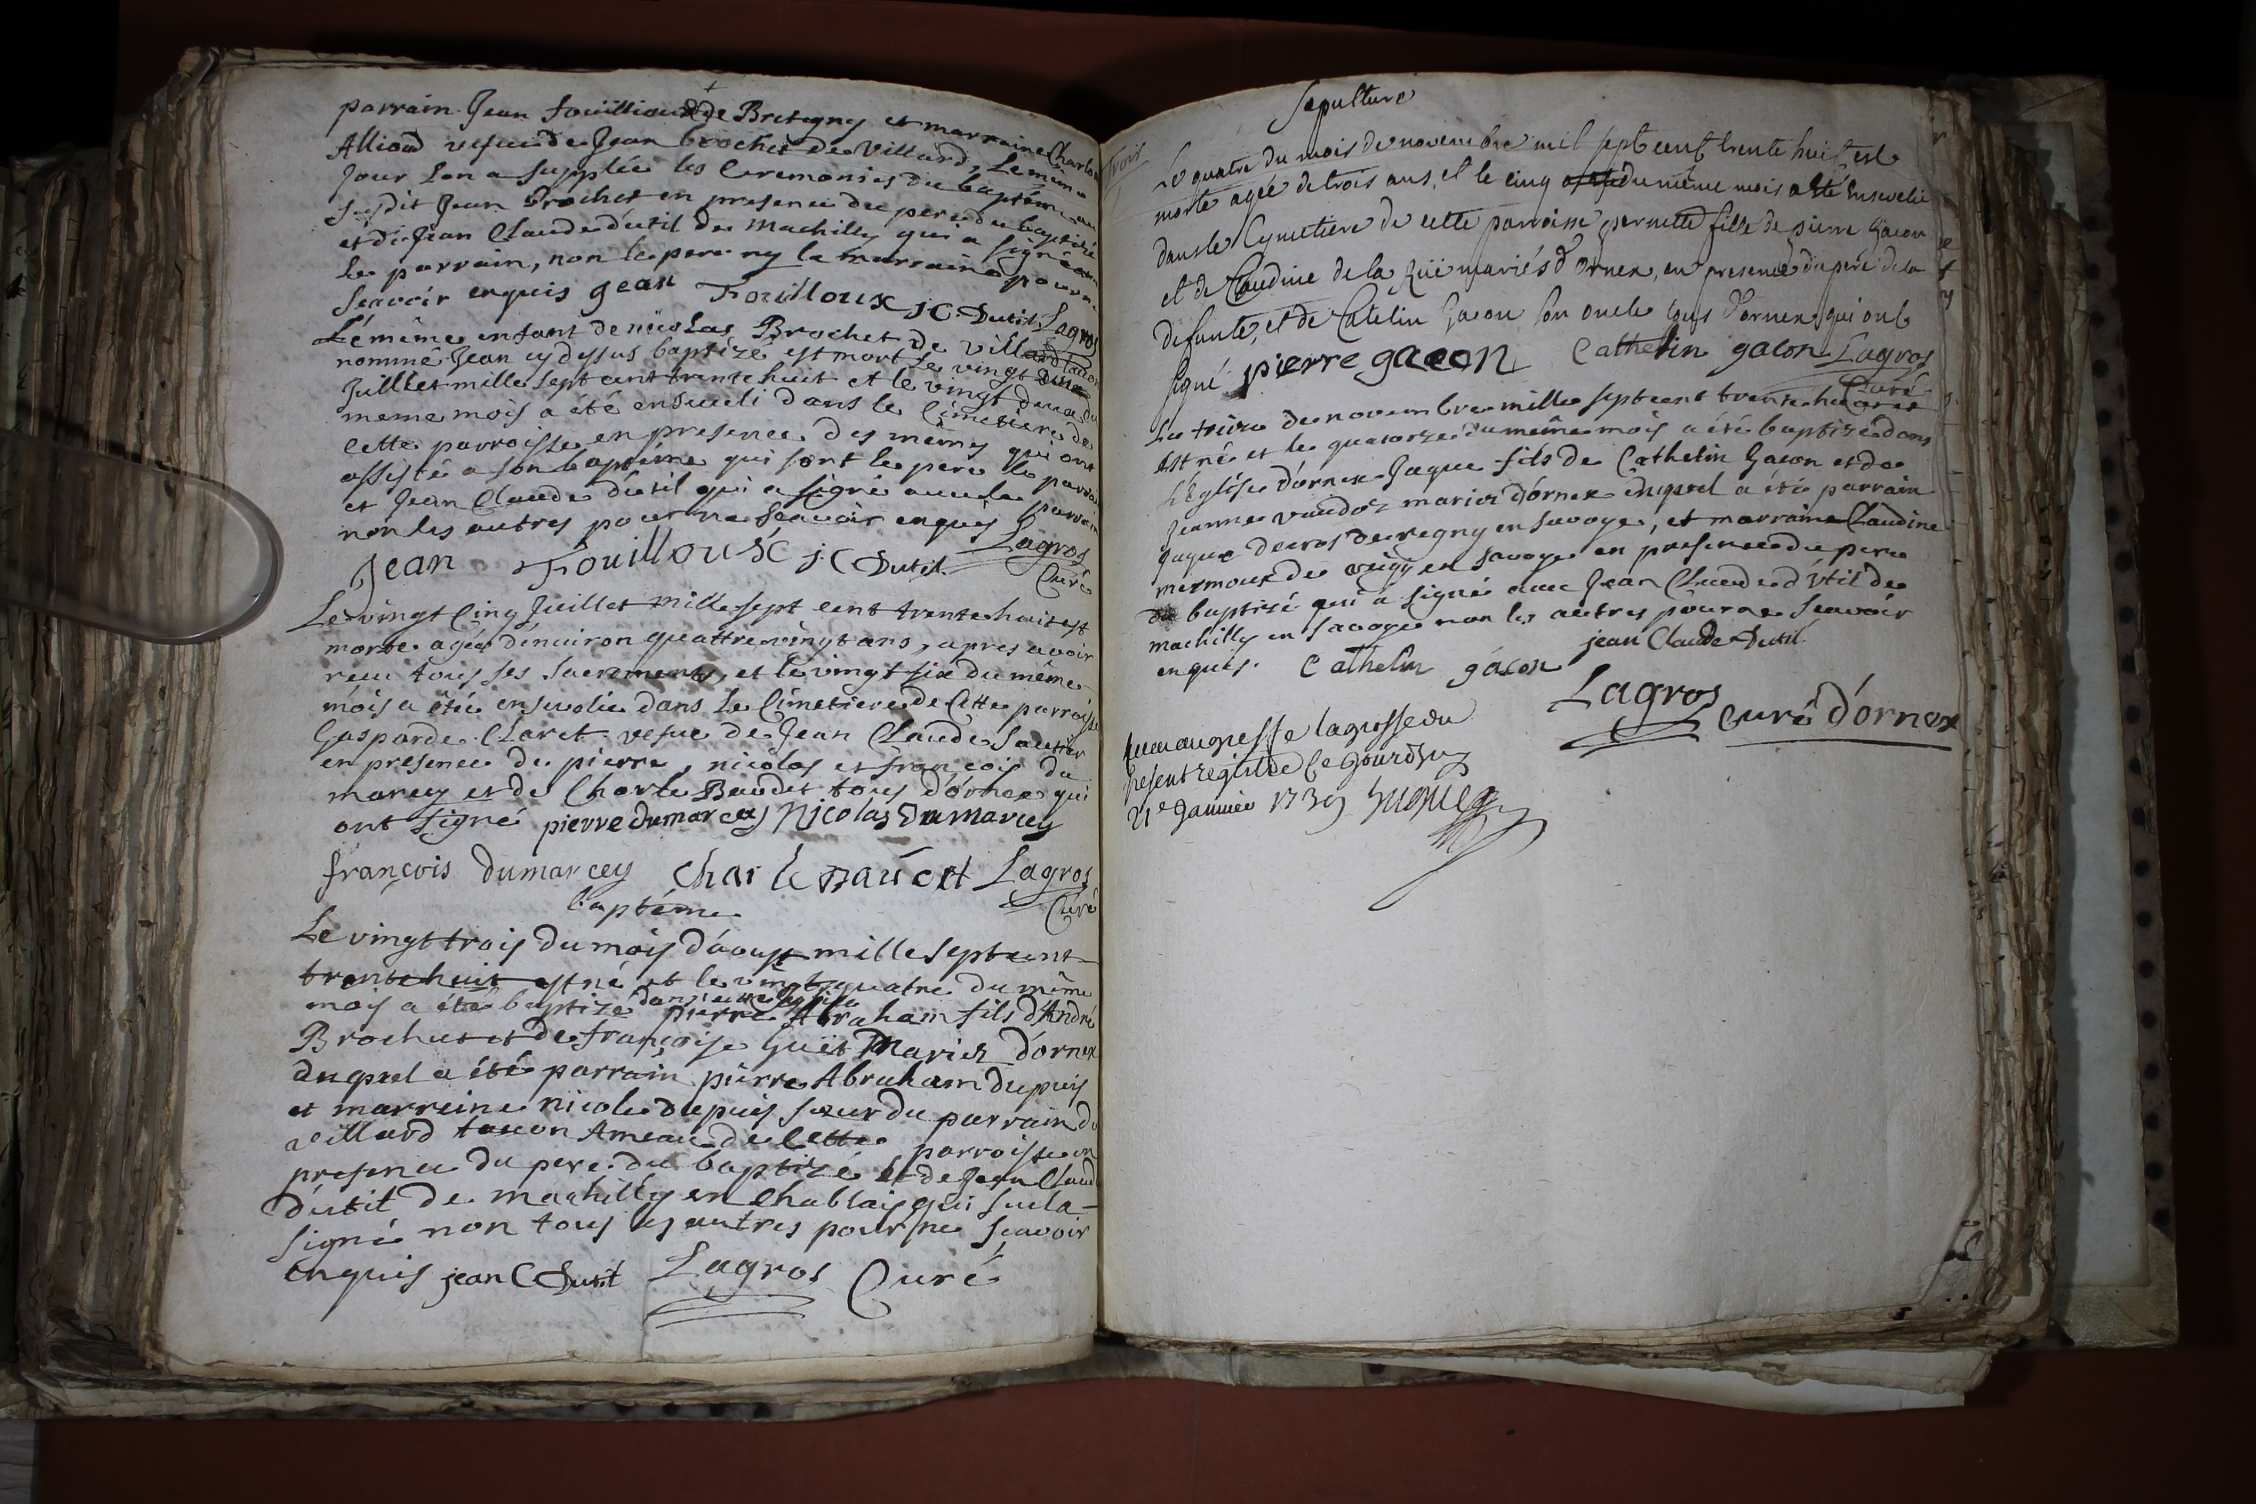 parrain Jean fouilliou de Bretegny et marraine Charlo
Alliod vefue de Jean brochet de Villard, Le même
Jour Lon a supplée les Ceremonies du baptême au
susdit Jean Brochet en presence du pere du baptizé
et de Jean Claude dutil de Machilly qui a signé auec
le parrain, non le pere ny la marraine pour ne
scavoir enquis Jean Fouilloux J C Dutil Lagros
Le même enfant de nicolas Brochet de Villard tacon
nommé Jean cy dessus baptizé est mort le vingt
Juillet mille sept cent trente huit et le vingt deux du
meme mois a été enseueli dans le Cimetiere de
cette parroisse en presence des mêmes qui ont
assisté a son baptême qui sont le pere le parrain
et Jean Claude dutil qui a signé auec le parrain
non les autres pour ne scavoir enquis Lagros
Jean Fouilloux j C Dutil Curé
Le vingt Cinq Juillet mille sept cent trente huit est
morte agée d'enuiron quattre vingt ans, apres avoir
receu tous ses sacrements, et le vingt six du même
mois a été enseuelie dans le Cimetiere de Cette parroisse
Gasparde Claret vefue de Jean Claude Sautier
en presence de pierre, nicolas et françois du
marcey et de Charle Baudet tous d'ornex qui
ont signé pierre dumarcey Nicolas Dumarcey
françois dumarcey Charle Baudet Lagros
baptême Curé
Le vingt trois du mois d'aoust mille sept cent
trente huit est né et le vingt quatre du même
dans cette Eglise
mois a été baptizé pierre Abraham fils d'André
Brochet et de françoise Guët Mariez d'ornex
duquel a été parrain pierre Abraham Dupuis
et marreine nicole dupuis sœur du parrain du
villard tacon Ameau de Cette parroisse en
presence du pere du baptizé et de Jean Claude
dutil de machilly en Chablais qui seul a
signé non tous les autres pour ne scavoir
enquis jean C Dutil Lagros Curé
sepulture
trois
Le quatre du mois de novembre mil sept cent trente huit est
morte agée de trois ans, et le cinq du même mois a été Ensevelie
dans le Cymetiere de cette parroisse pernette fille de pierre Gacon
et de Claudine de la Rüe mariés d'Ornex, en presence du pere de la
defunte, et de Catelin Gacon son oncle tous d'ornex qui ont
signé pierre gacon Cathelin gacon Lagros
Curé
Le treize de novembre mille sept cent trente huit
est né et le quatorze du même mois a été baptizé dans
L'Eglise d'ornex Jaque fils de Cathelin Gacon et de
Jeanne vaudoz mariez d'ornex duquel a été parrain
Jaque decros de regny en Savoye, et marraine Claudine
mermoux de veigy en Savoye en presence du pere
du baptizé qui a signé auec Jean Claude d'Util de
machilly en Savoye non les autres pour ne scavoir
enquis. Cathelin gacon jean Claude Dutil
Lagros Curé d'ornex
la grosse du
present registre Ce Jourdhuy
21e Janvier 1739